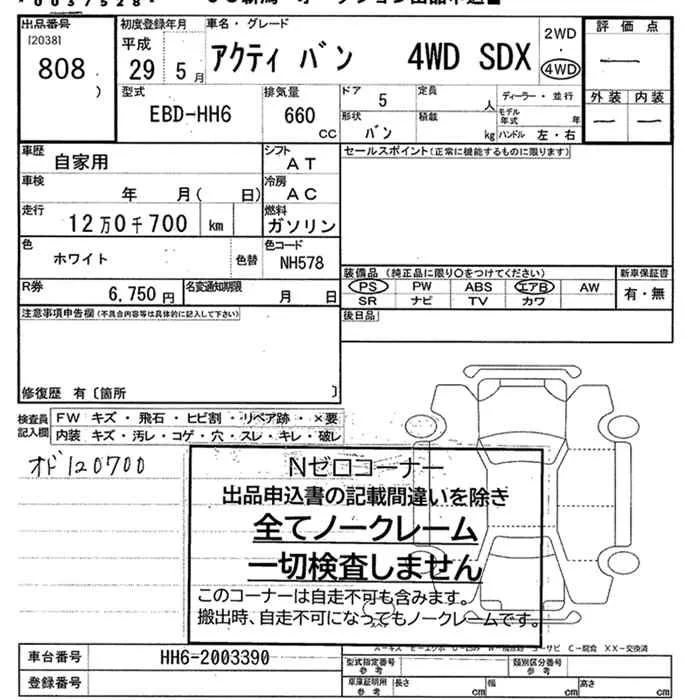 *0037528*
出品番号 [2038] 808
初度登録年月 平成 29 5月
車名・グレード アクティ バン 4WD SDX
2WD・4WD
評価点 —
外装 内装
— —
型式 EBD-HH6
排気量 660 CC
ドア 5
定員 人
ディーラー・並行
形状 バン
積載 kg
モデル年式 年
ハンドル 左・右
車歴 自家用
シフト AT
セールスポイント(正常に機能するものに限ります)
車検 年 月( 日)
冷房 AC
走行 12万0千700 km
燃料 ガソリン
色 ホワイト
色替
色コード NH578
装備品(純正品に限り〇をつけてください)
新車保証書
PS PW ABS エアB AW
有・無
SR ナビ TV カワ
R券 6,750円
名変通知期限 月 日
後日品
注意事項申告欄(不具合内容等は具体的に記入して下さい)
修復歴 有〔箇所 〕
検査員記入欄
FW キズ・飛石・ヒビ割・リペア跡・×要
内装 キズ・汚レ・コゲ・穴・スレ・キレ・破レ
オド120700
Nゼロコーナー
出品申込書の記載間違いを除き
全てノークレーム
一切検査しません
このコーナーは自走不可も含みます。
搬出時、自走不可になってもノークレームです。
車台番号 HH6-2003390
登録番号
型式指定番号 参考
類別区分番号 参考
車庫証明用 参考
長さ cm 幅 cm 高さ cm